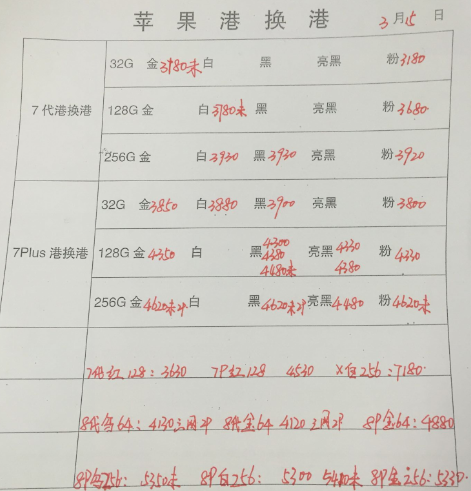 苹果港换港 3月15日
7代港换港
32G 金3180未 白 黑 亮黑 粉3180
128G 金 白3780未 黑 亮黑 粉3680
256G 金 白3930 黑3930 亮黑 粉3920
7Plus 港换港
32G 金3850 白3880 黑3900 亮黑 粉3800
128G 金4350 白 黑4300 4380 4480未 亮黑4330 4380 粉4330
256G 金4620未 白 黑4620未 亮黑4480 粉4620未
7代红128:3630 7P红128 4530 X白256:7180
64:4130三网 8代金64 4120三网 8P金64:4880
256:5350未 8P白256: 5300 5400未 8P金256:5330